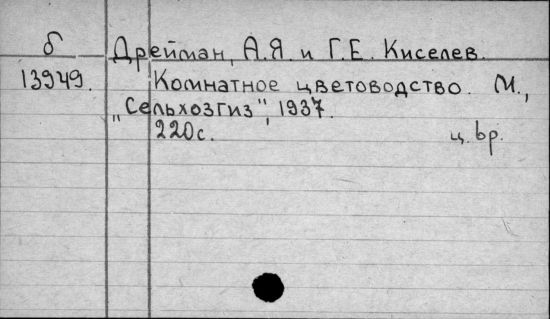 б Дрейман, А.Я. и Г.Е. Киселев.
13949. Комнатное цветоводство. М.,
„Сельхозгиз", 1937.
220с. ц. 6р.